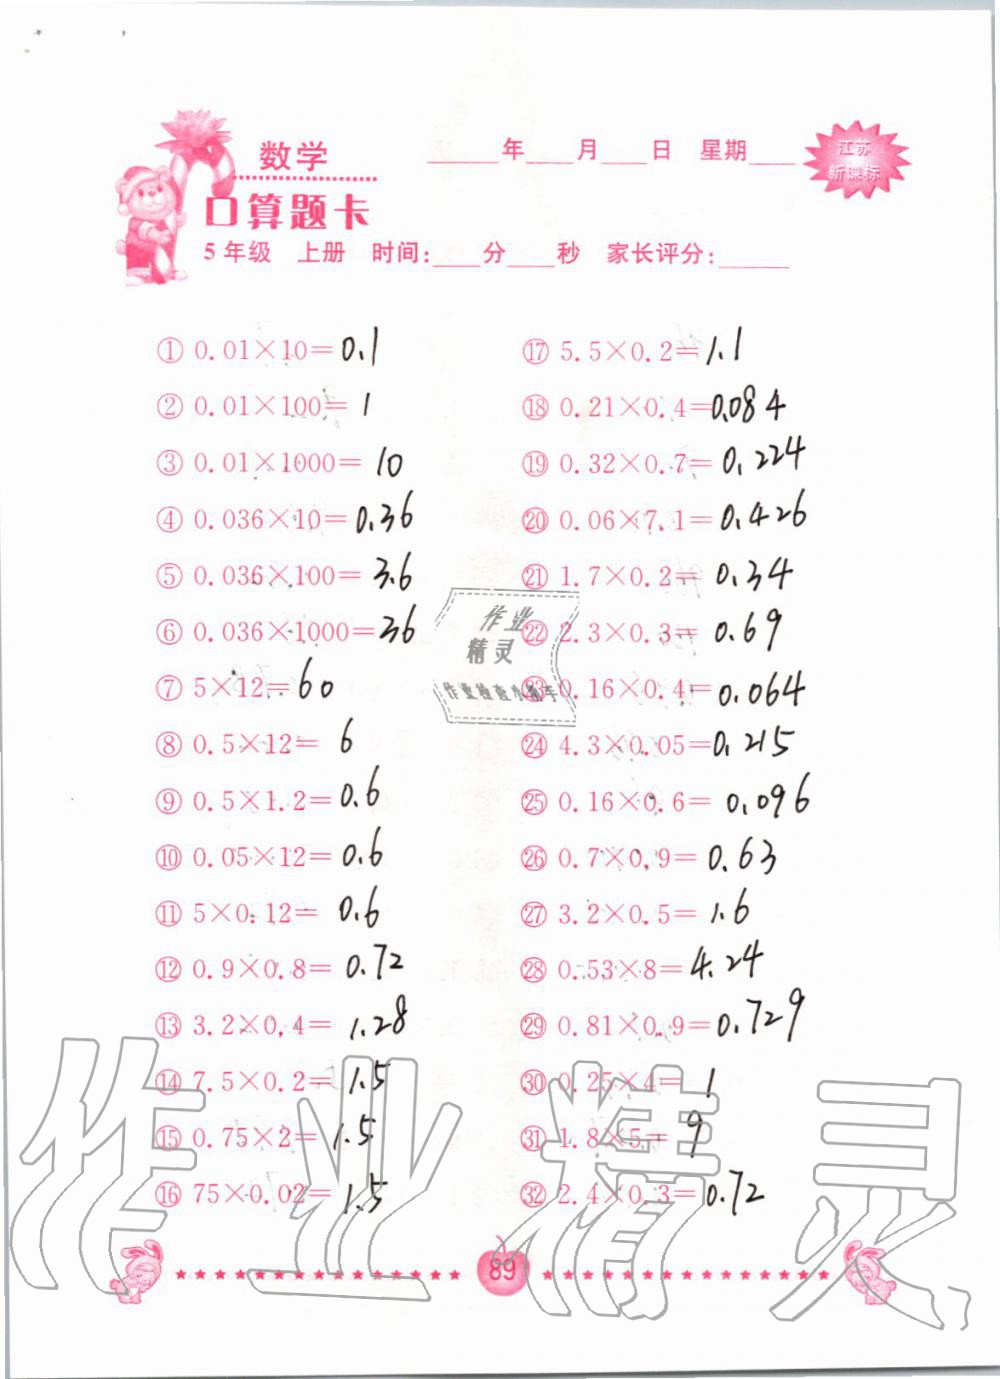 数学
____年____月____日 星期____
江苏
新课标
口算题卡
5年级 上册 时间:____分____秒 家长评分:____
① 0.01×10= 0.1
② 0.01×100= 1
③ 0.01×1000= 10
④ 0.036×10= 0.36
⑤ 0.036×100= 3.6
⑥ 0.036×1000= 36
⑦ 5×12= 60
⑧ 0.5×12= 6
⑨ 0.5×1.2= 0.6
⑩ 0.05×12= 0.6
⑪ 5×0.12= 0.6
⑫ 0.9×0.8= 0.72
⑬ 3.2×0.4= 1.28
⑭ 7.5×0.2= 1.5
⑮ 0.75×2= 1.5
⑯ 75×0.02= 1.5
⑰ 5.5×0.2= 1.1
⑱ 0.21×0.4= 0.084
⑲ 0.32×0.7= 0.224
⑳ 0.06×7.1= 0.426
㉑ 1.7×0.2= 0.34
㉒ 2.3×0.3= 0.69
㉓ 0.16×0.4= 0.064
㉔ 4.3×0.05= 0.215
㉕ 0.16×0.6= 0.096
㉖ 0.7×0.9= 0.63
㉗ 3.2×0.5= 1.6
㉘ 0.53×8= 4.24
㉙ 0.81×0.9= 0.729
㉚ 0.25×4= 1
㉛ 1.8×5= 9
㉜ 2.4×0.3= 0.72
作业
精灵
作业检查小助手
作业精灵
89